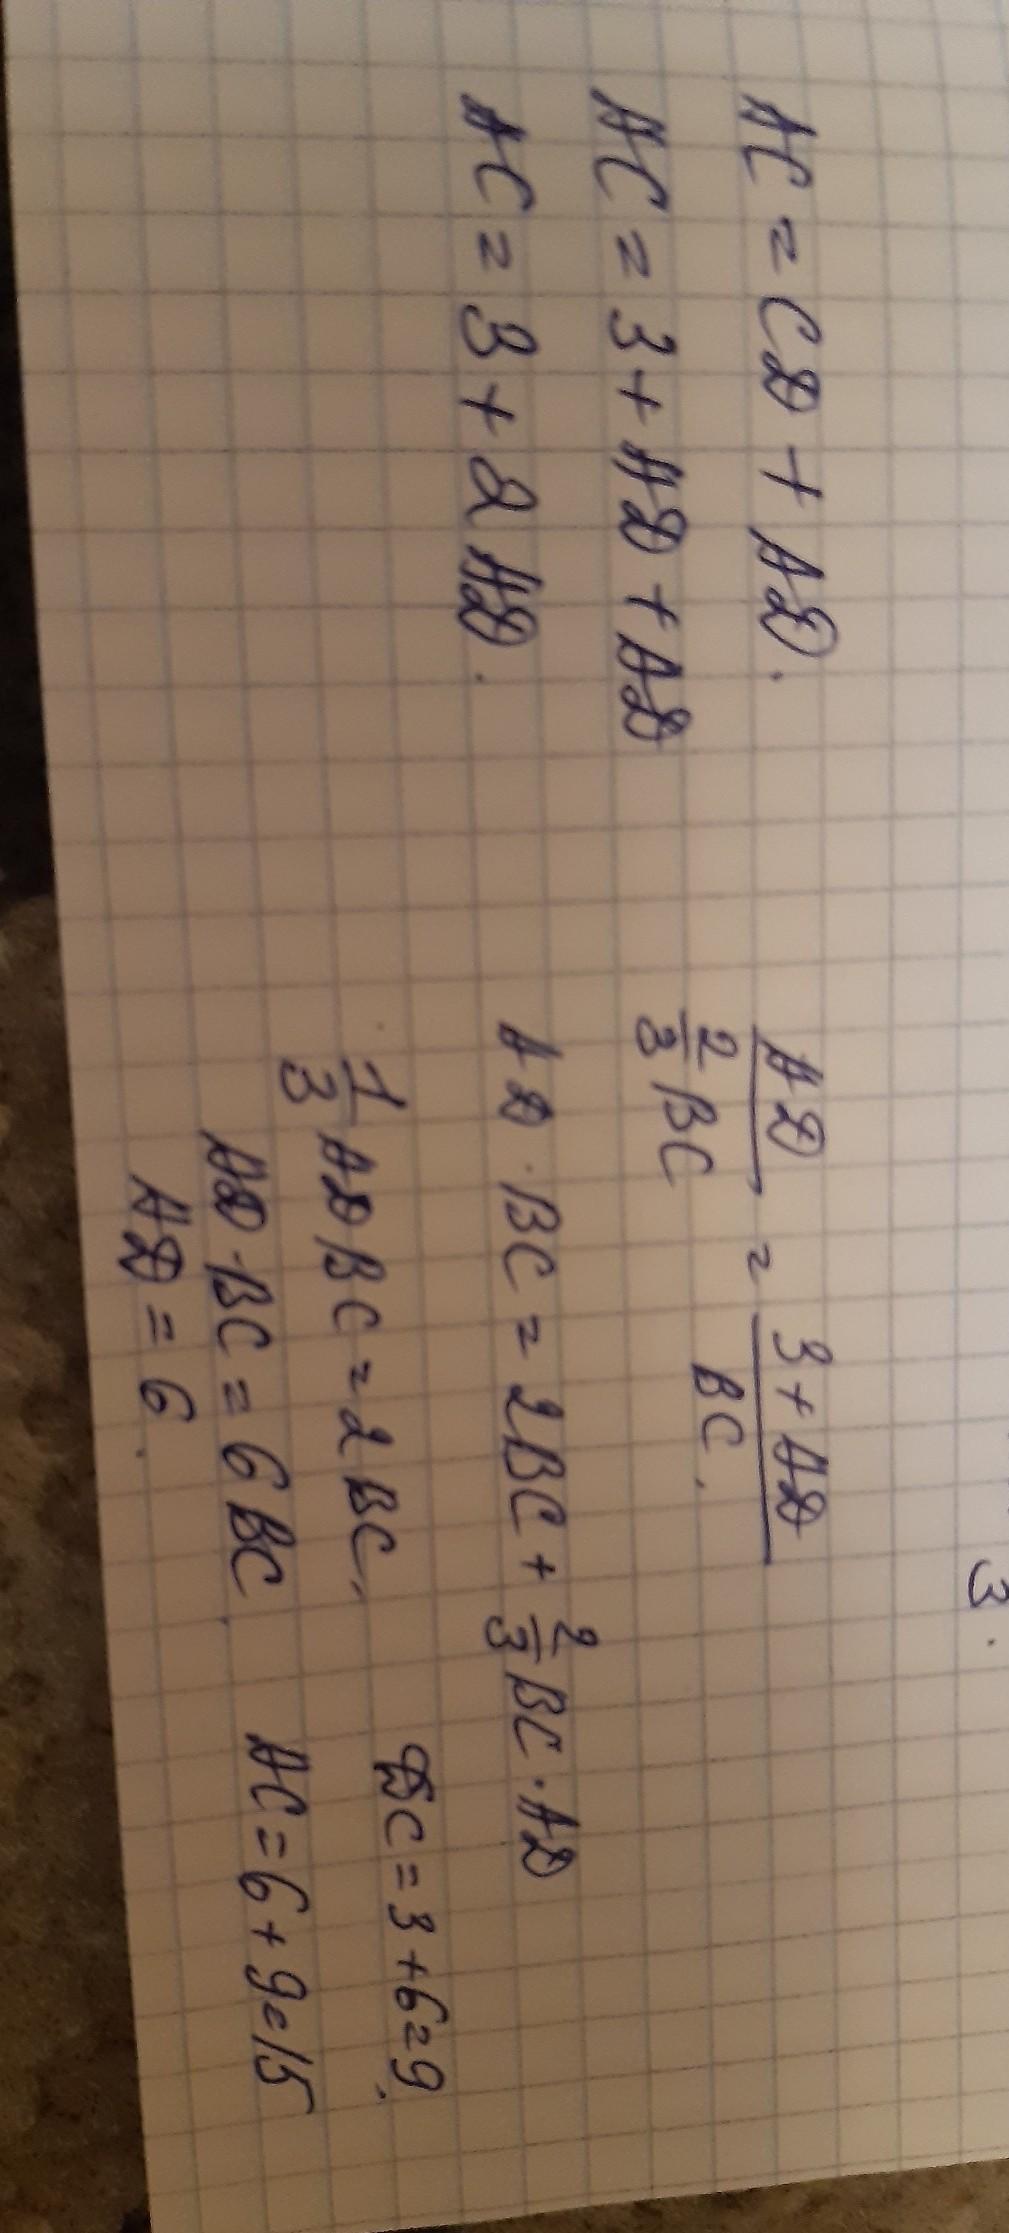 3.
AC = CD + AD.
AC = 3 + AD + AD
AC = 3 + 2AD.
AD / 2/3 BC = 3 + AD / BC.
AD · BC = 2BC + 2/3 BC · AD
1/3 AD BC = 2BC,
AD · BC = 6BC.
AD = 6.
DC = 3 + 6 = 9.
AC = 6 + 9 = 15